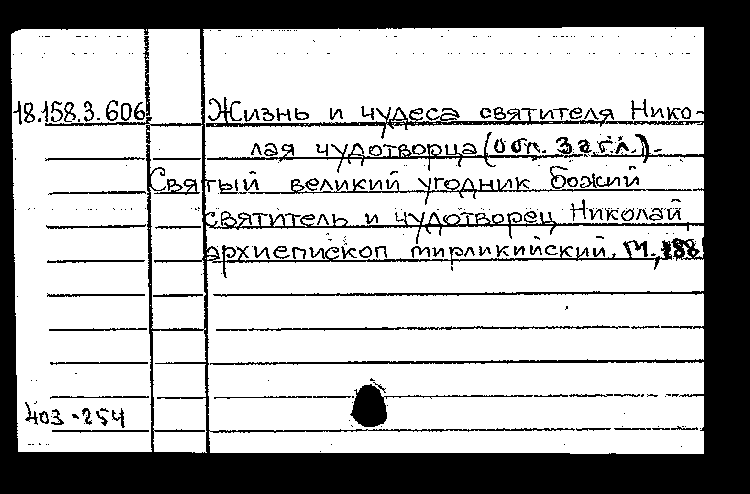 18.158.3.606 Жизнь и чудеса святителя Нико-
лая чудотворца (обл. загл.).
Святый великий угодник божий
святитель и чудотворец Николай,
архиепископ мирликийский. М.,
403-254